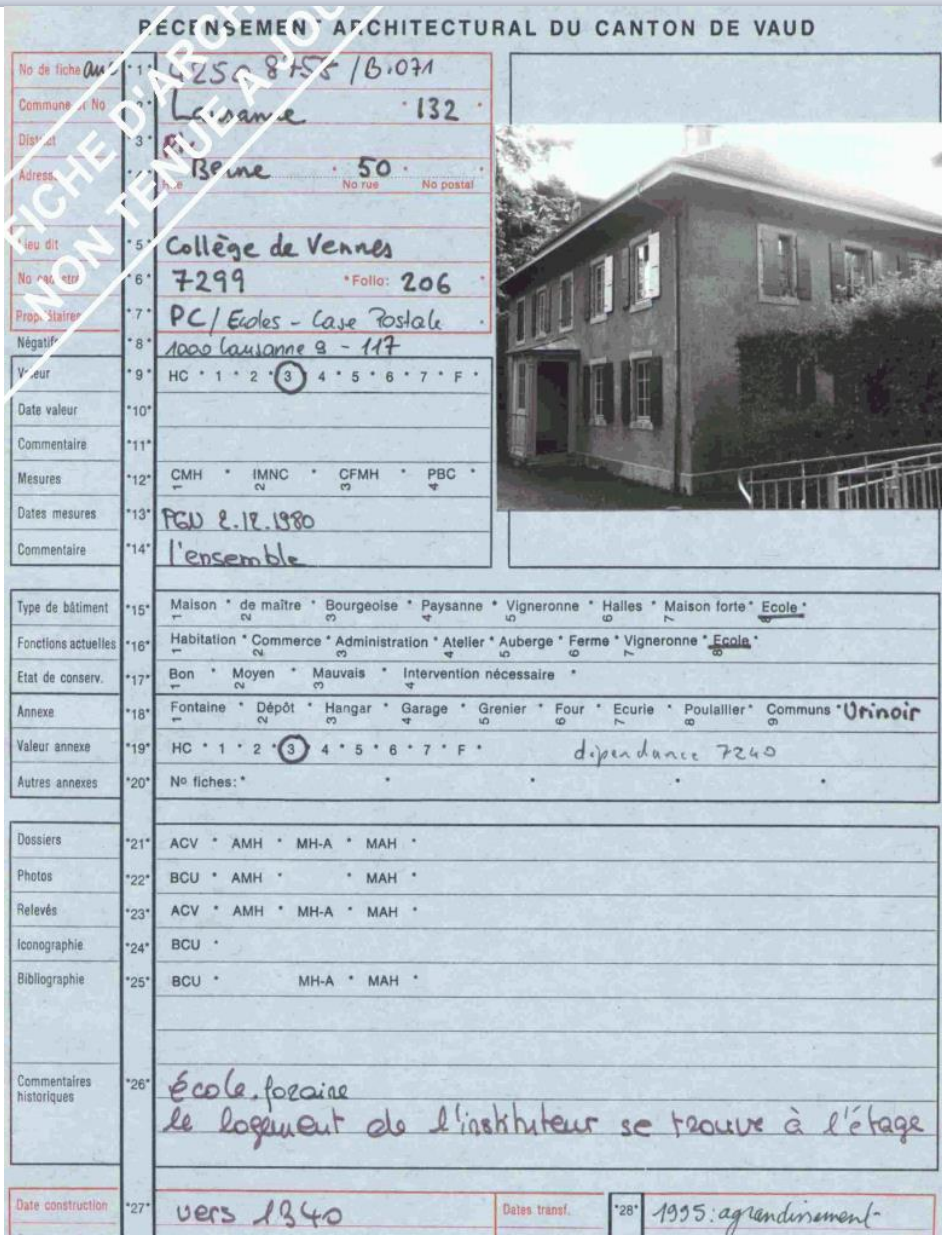 RECENSEMENT ARCHITECTURAL DU CANTON DE VAUD
FICHE D'ARCHIVE
NON TENUE A JOUR
No de fiche *1* /B.071
Commune et No *2* Lausanne * 132 *
District *3*
Adresse *4* Berne 50
Rue No rue No postal
Lieu dit *5* Collège de Vennes
No cadastre *6* 7299 *Folio: 206 *
Propriétaires *7* PC/Ecoles - Case Postale
Négatifs *8* 1000 Lausanne 9 - 117
Valeur *9* HC * 1 * 2 * 3 * 4 * 5 * 6 * 7 * F *
Date valeur *10*
Commentaire *11*
Mesures *12* CMH * IMNC * CFMH * PBC *
1 2 3 4
Dates mesures *13* PGN 2.12.1980
Commentaire *14* l'ensemble
Type de bâtiment *15* Maison * de maître * Bourgeoise * Paysanne * Vigneronne * Halles * Maison forte * Ecole *
1 2 3 4 5 6 7 8
Fonctions actuelles *16* Habitation * Commerce * Administration * Atelier * Auberge * Ferme * Vigneronne * Ecole *
1 2 3 4 5 6 7 8
Etat de conserv. *17* Bon * Moyen * Mauvais * Intervention nécessaire *
1 2 3 4
Annexe *18* Fontaine * Dépôt * Hangar * Garage * Grenier * Four * Ecurie * Poulailler * Communs * Urinoir
1 2 3 4 5 6 7 8 9
Valeur annexe *19* HC * 1 * 2 * 3 * 4 * 5 * 6 * 7 * F * dépendance 7240
Autres annexes *20* No fiches: * * * * *
Dossiers *21* ACV * AMH * MH-A * MAH *
Photos *22* BCU * AMH * * MAH *
Relevés *23* ACV * AMH * MH-A * MAH *
Iconographie *24* BCU *
Bibliographie *25* BCU * MH-A * MAH *
Commentaires historiques *26* école foraine
le logement de l'instituteur se trouve à l'étage
Date construction *27* vers 1840 Dates transf. *28* 1995: agrandissement